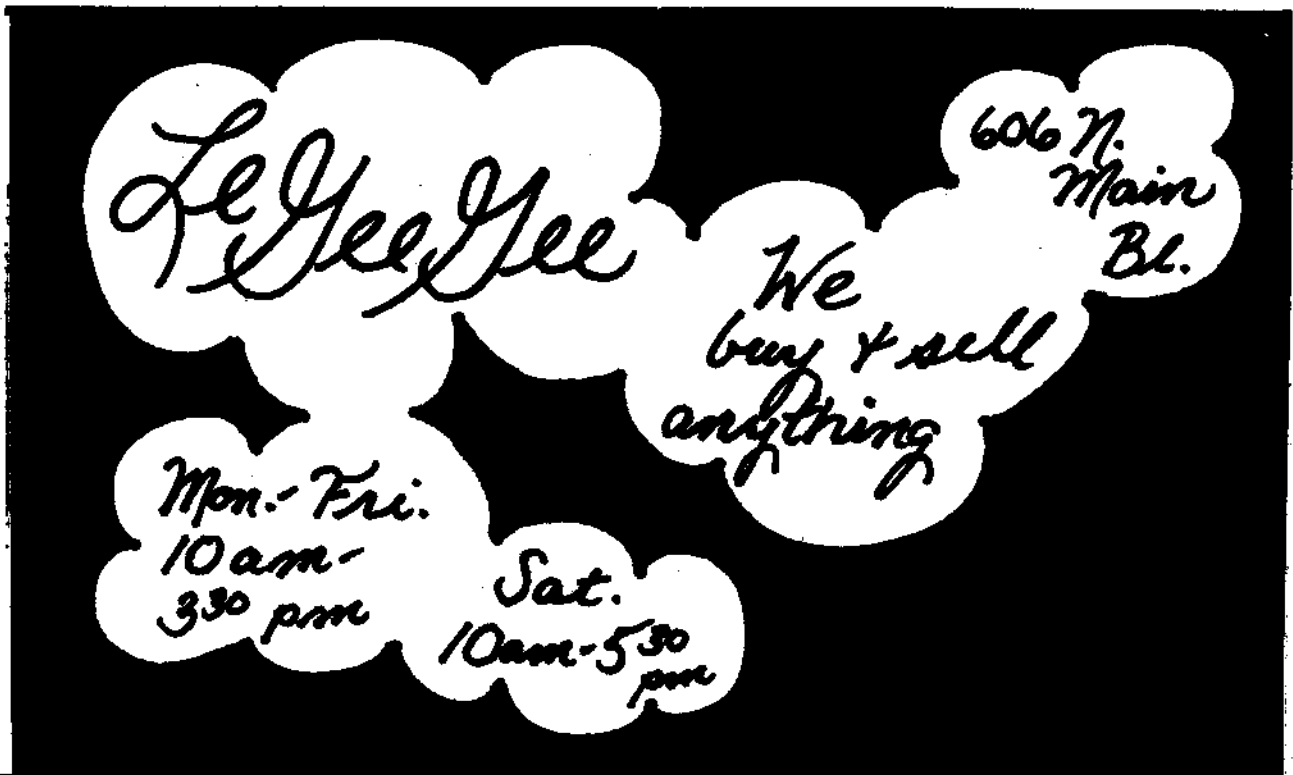 Le Gee Gee
606 N.
Main
Bl.
We
buy & sell
anything
Mon.-Fri.
10 am-
3³⁰ pm
Sat.
10am-5³⁰
pm